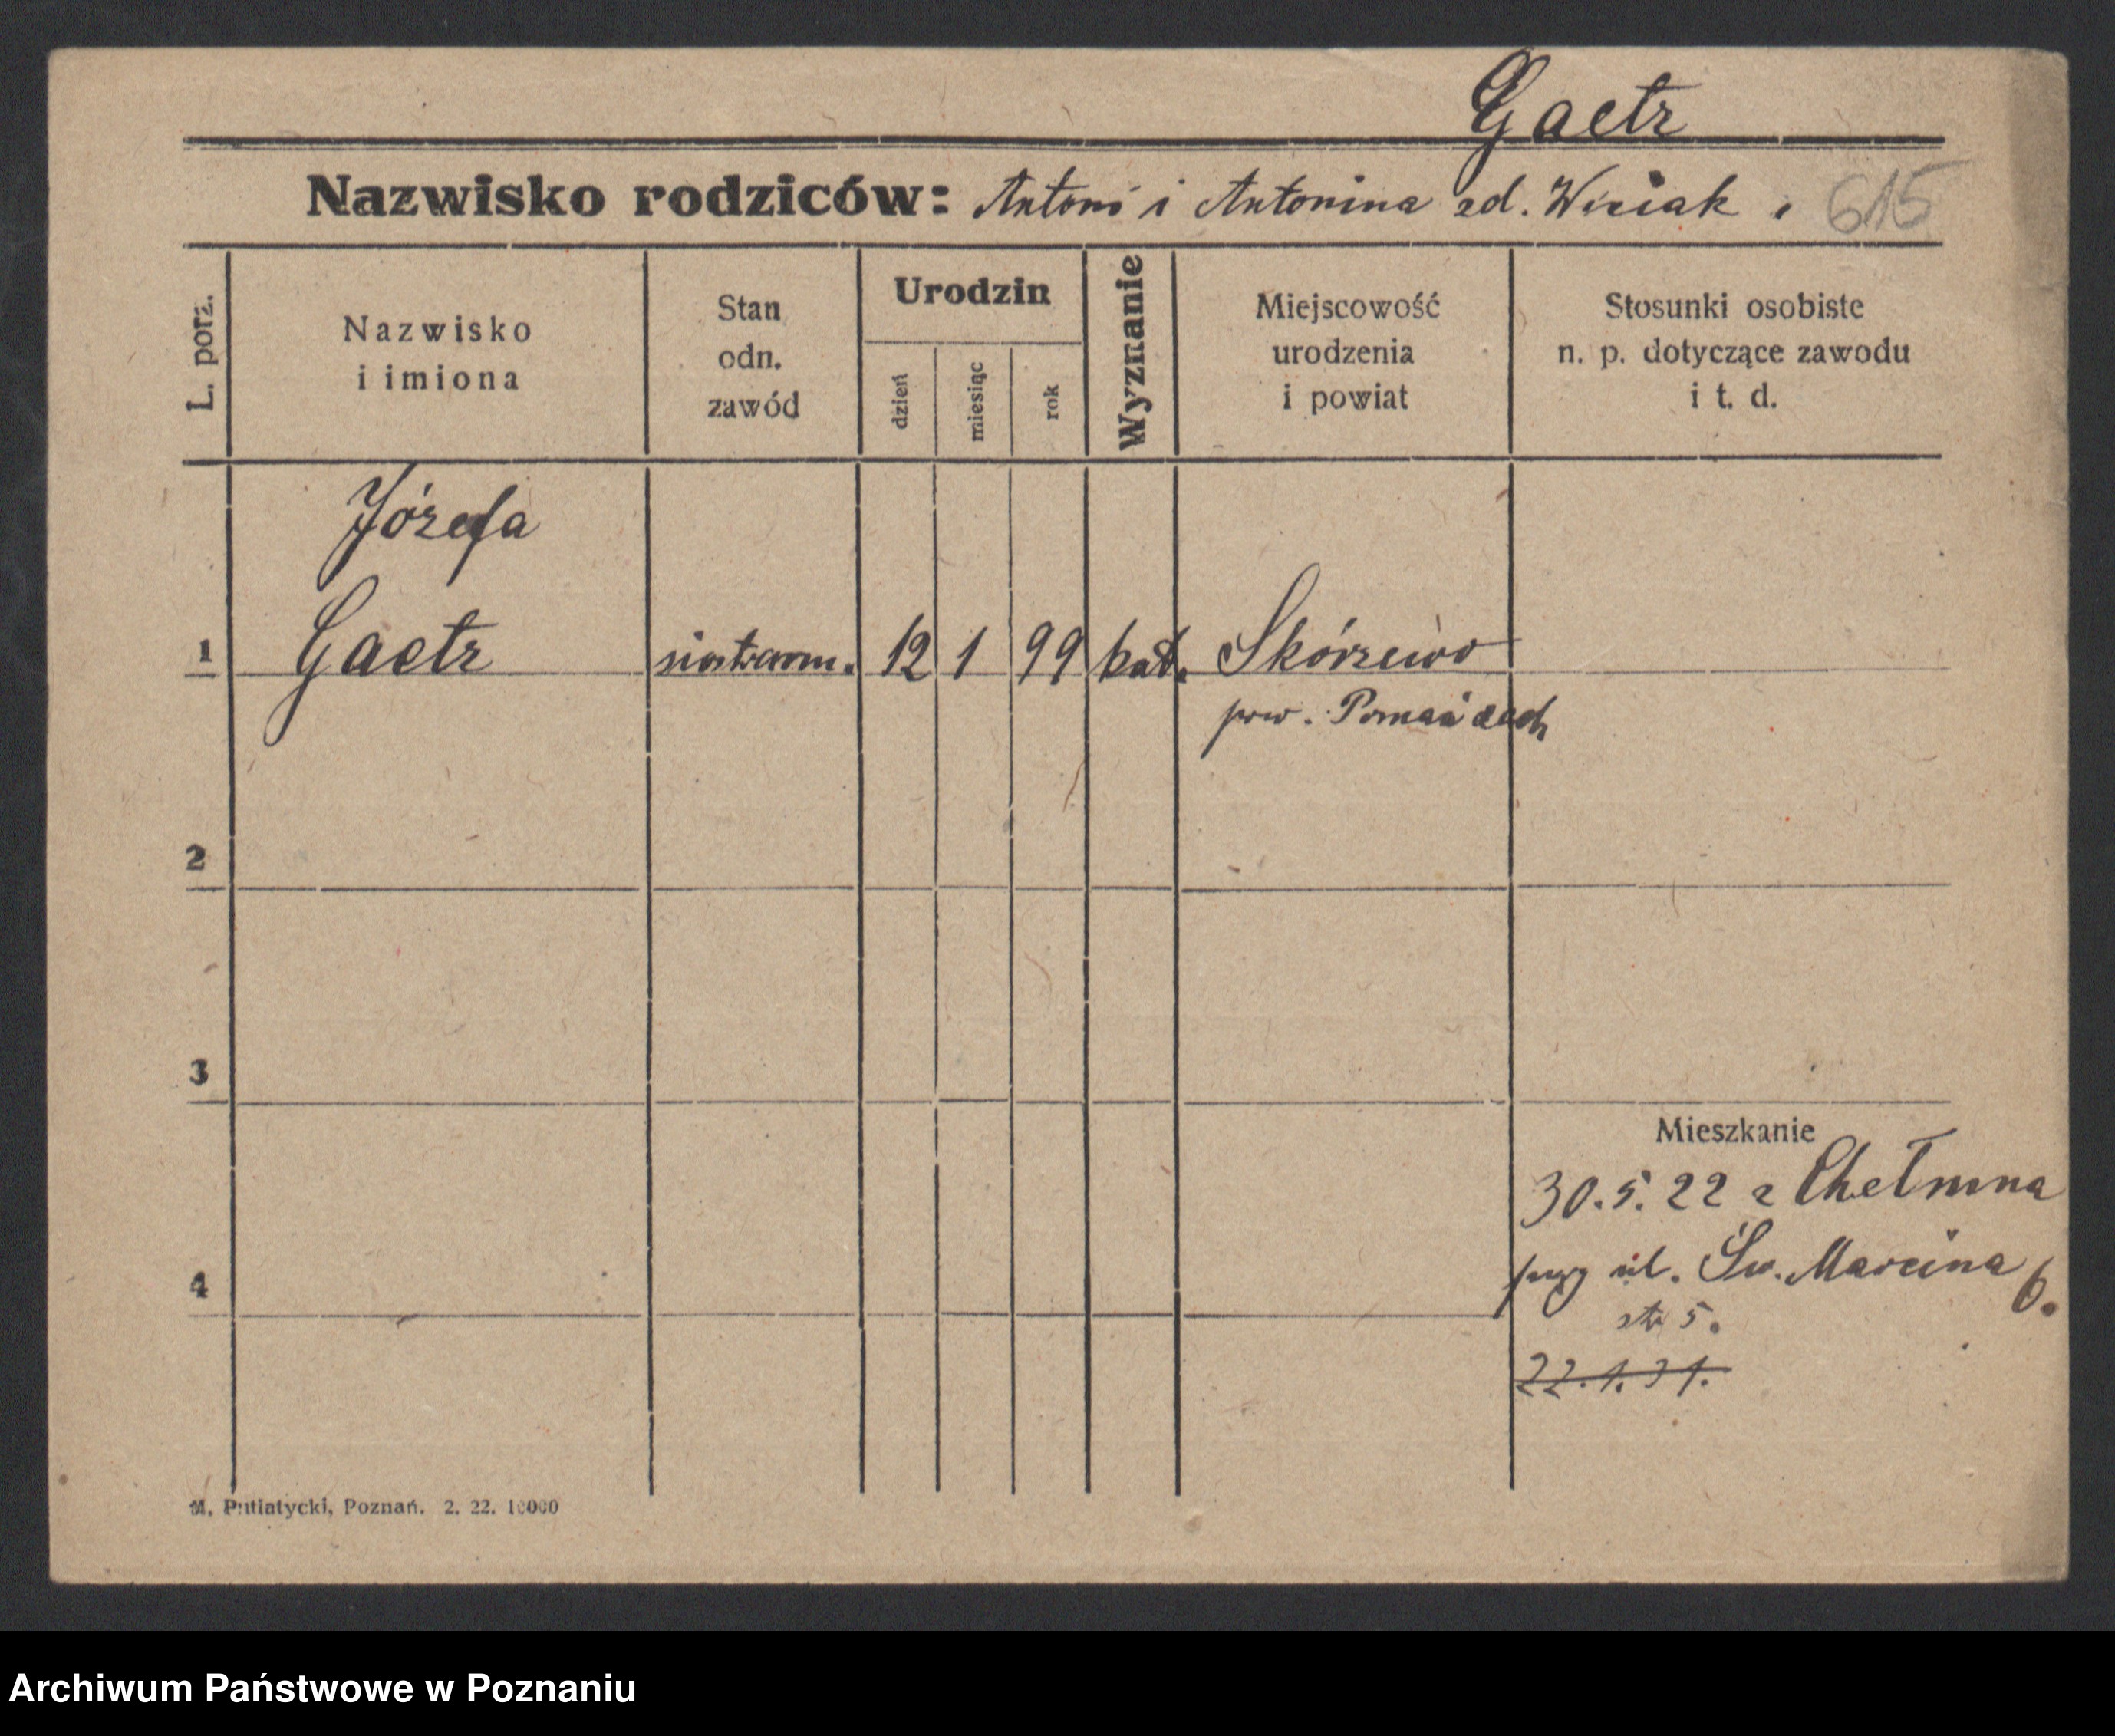 Gaetz
Nazwisko rodziców: Antoni i Antonina zd. Wiziak. 615
L. porz.
Nazwisko
i imiona
Stan
odn.
zawód
Urodzin
dzień
miesiąc
rok
Wyznanie
Miejscowość
urodzenia
i powiat
Stosunki osobiste
n. p. dotyczące zawodu
i t. d.
Józefa
1 Gaetz 12 1 99 kat. Skórzewo
pow. Poznań zach
2
3
Mieszkanie
30.5.22 z Chełmna
przy ul. Św. Marcina 6.
4
str 5.
22.1.31.
M. Putiatycki, Poznań. 2. 22. 10000
Archiwum Państwowe w Poznaniu